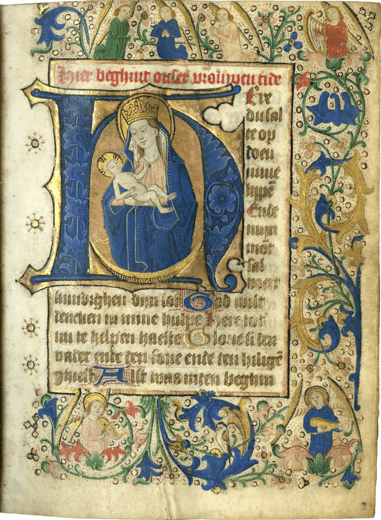 Hier beghint onser vrouwen tide
HEre
du sal
te op
doen
mine
lippē
Ende
minē
mōt
sal
kundighen dinen lof God wilt
dencken in mine hulpe Here tot
mi te helpen haeste Glorie si den
vader ende den sone ende den hilighē
gheest Alst was inden beghin